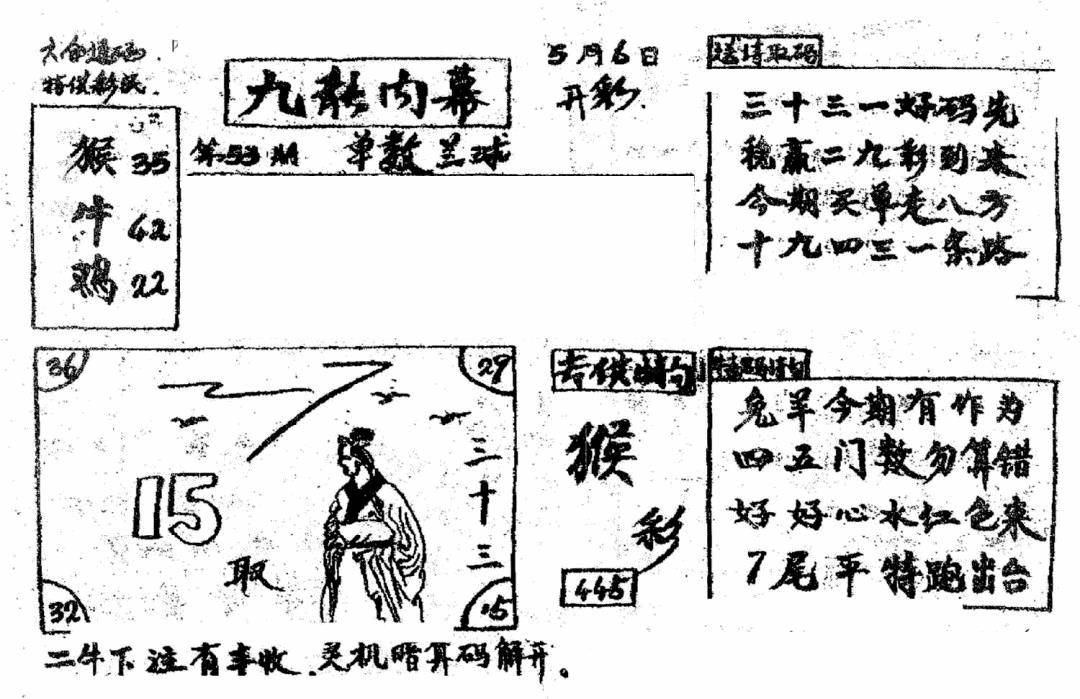 六合通码
特供彩民.
猴 35
牛 42
鸡 22
九龙内幕
第53期 单数兰球
5月6日
开彩.
送诗取码
三十三一好码先
稳赢二九彩到来
今期买单走八方
十九四三一条路
36
29
15
取
三十三
32
15
二牛下注有丰收.灵机暗算码解开。
专供幽句
猴
彩
445
特码诗句
兔羊今期有作为
四五门数勿算错
好好心水红色来
7尾平特跑出台